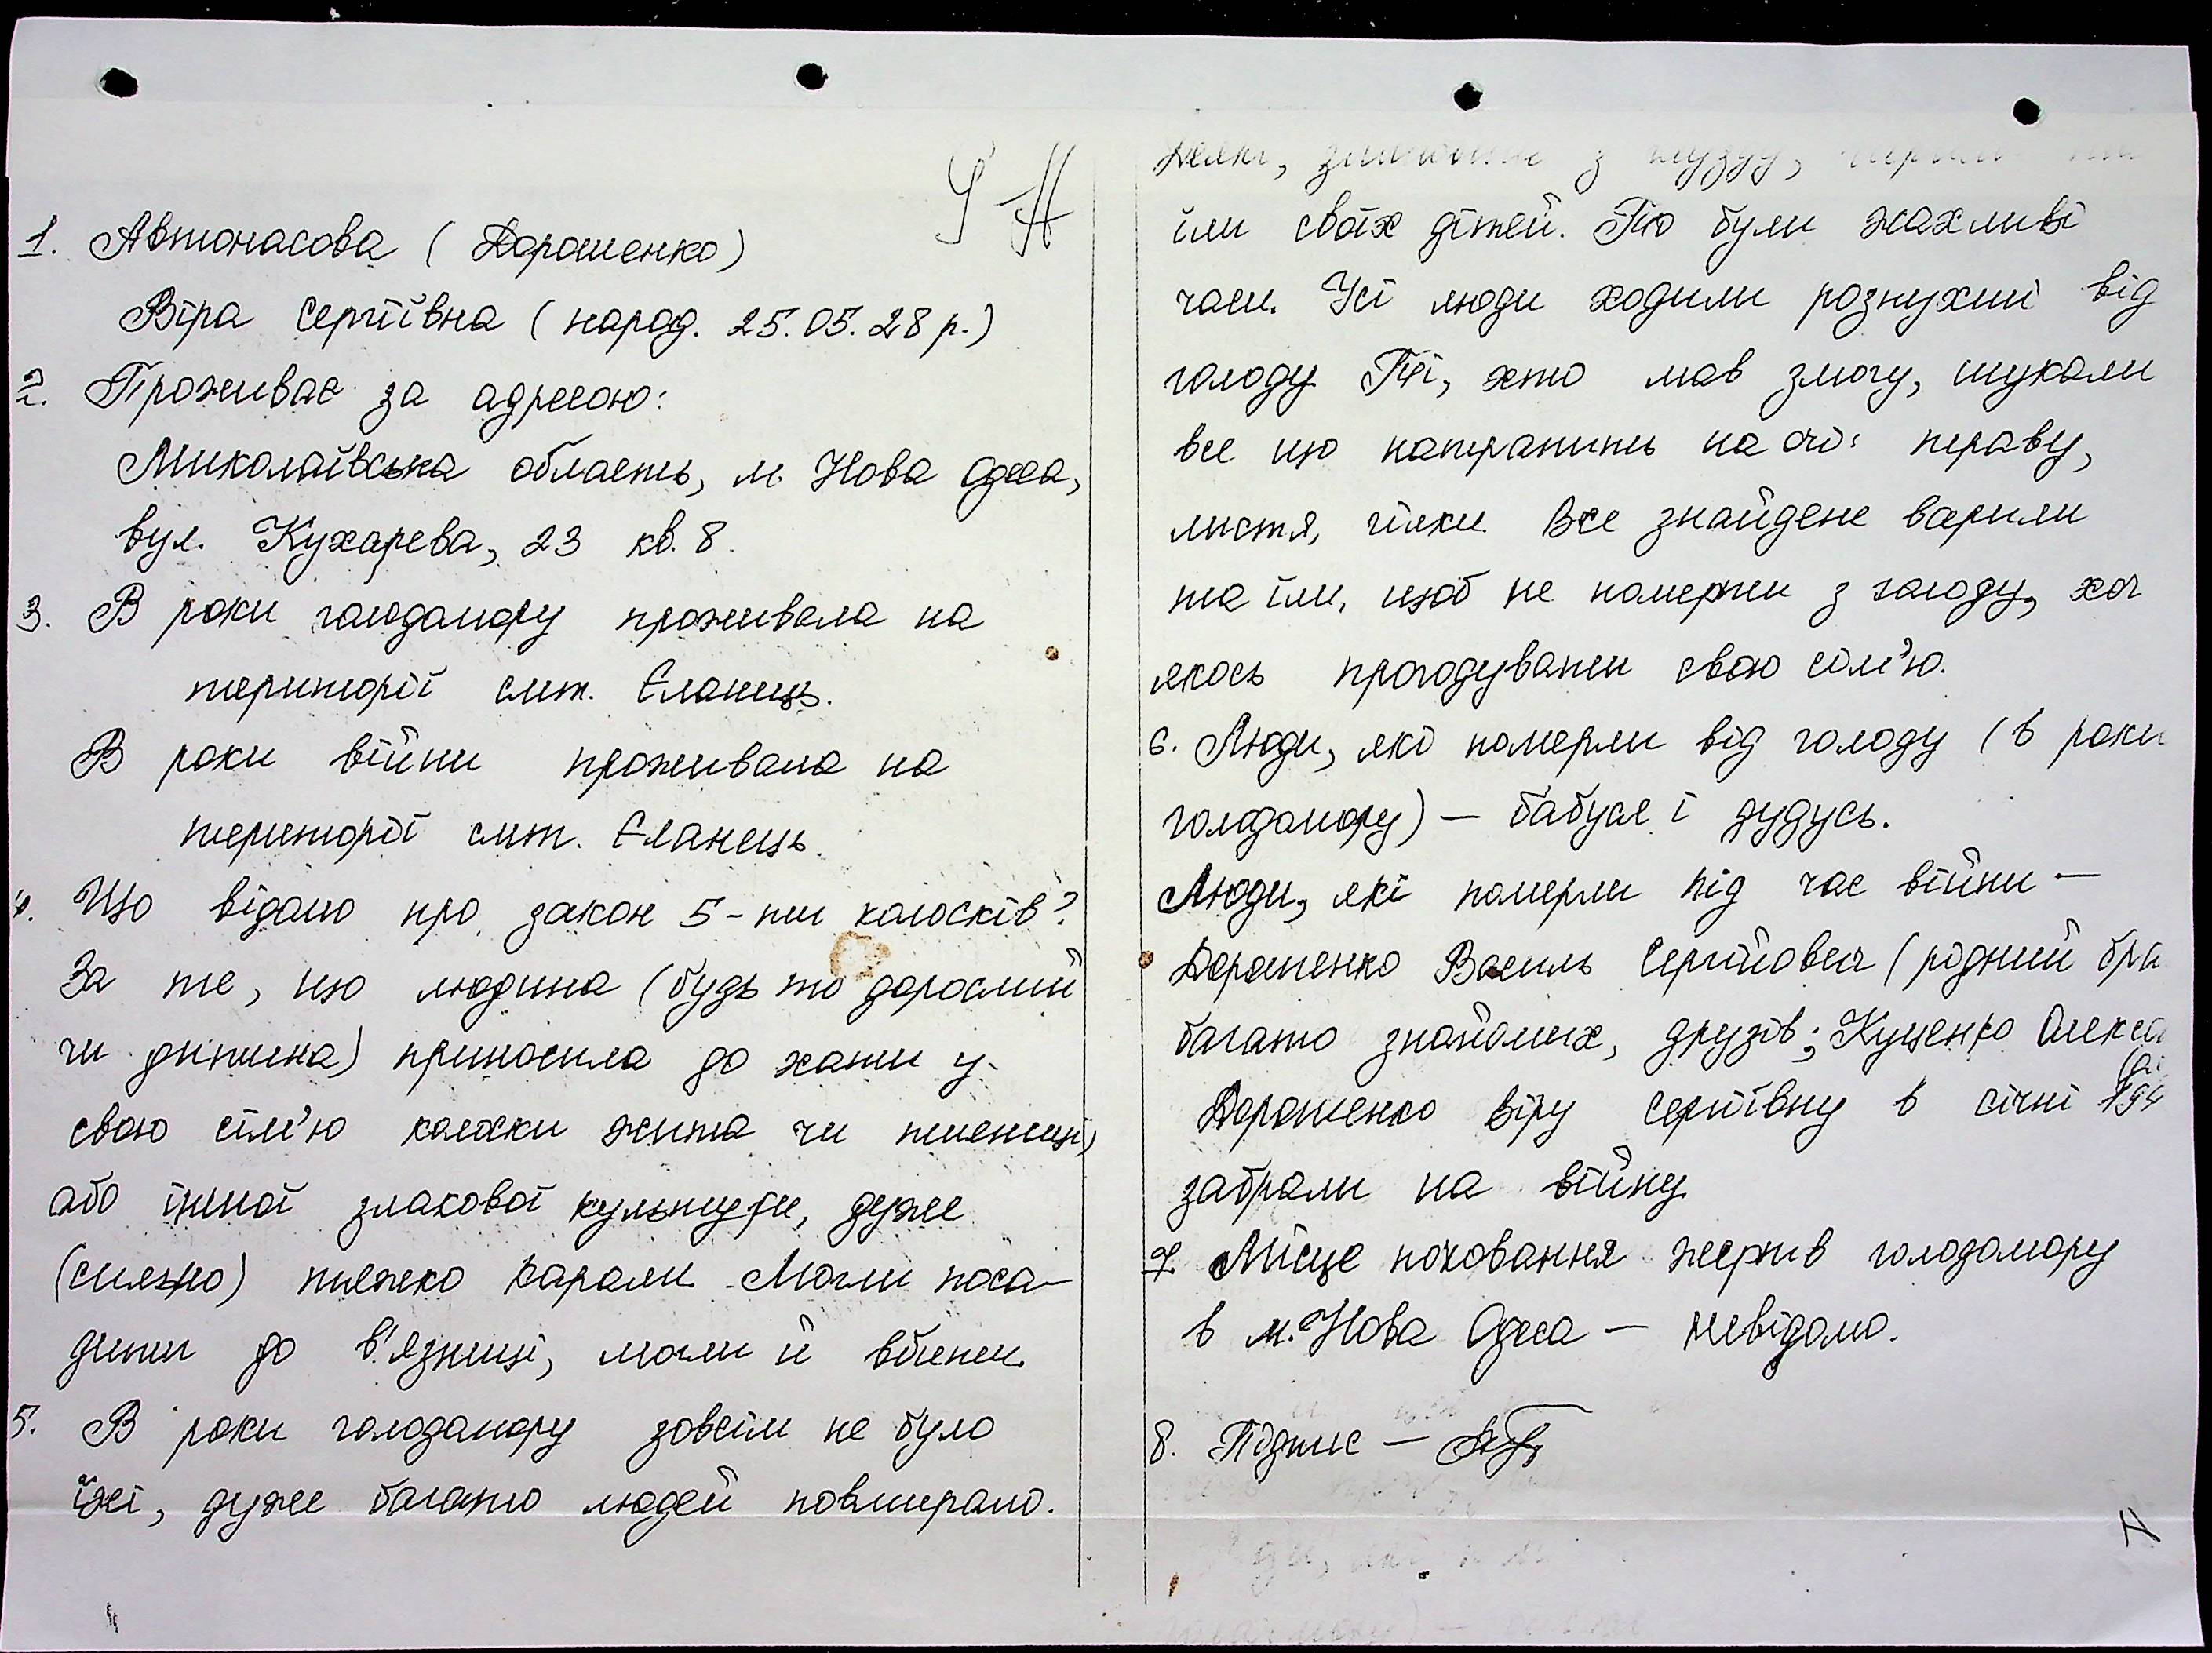 1. Автонасова (Дорошенко)
Віра Сергіївна (народ. 25.05.28 р.)
2. Проживає за адресою:
Миколаївська область, м. Нова Одеса,
вул. Кухарева, 23 кв. 8.
3. В роки голодомору проживала на
території смт. Єланець.
В роки війни проживала на
території смт. Єланець.
4. Що відомо про закон 5-ти колосків?
За те, що людина (будь то дорослий
чи дитина) приносила до хати у
свою сім'ю колоски жита чи пшениці,
або іншої злакової культури, дуже
(сильно) тяжко карали. Могли поса-
дити до в'язниці, могли й вбити.
5. В роки голодомору зовсім не було
їжі, дуже багато людей повмирало.
Деякі, з глузду,
їли своїх дітей. То були жахливі
часи. Усі люди ходили розпухші від
голоду. Ті, хто мав змогу, шукали
все що натрапить на очі: траву,
листя, гілки. Все знайдене варили
та їли, щоб не померти з голоду, хоч
якось прогодувати свою сім'ю.
6. Люди, які померли від голоду (в роки
голодомору) – бабуся і дудусь.
Люди, які померли під час війни –
Дорошенко Василь Сергійович (рідний бра
багато знайомих, друзів; Куценко Олекса
Дорошенко Віру Сергіївну в січні 194
забрали на війну.
7. Місце поховання жертв голодомору
в м. Нова Одеса – невідомо.
8. Підпис –